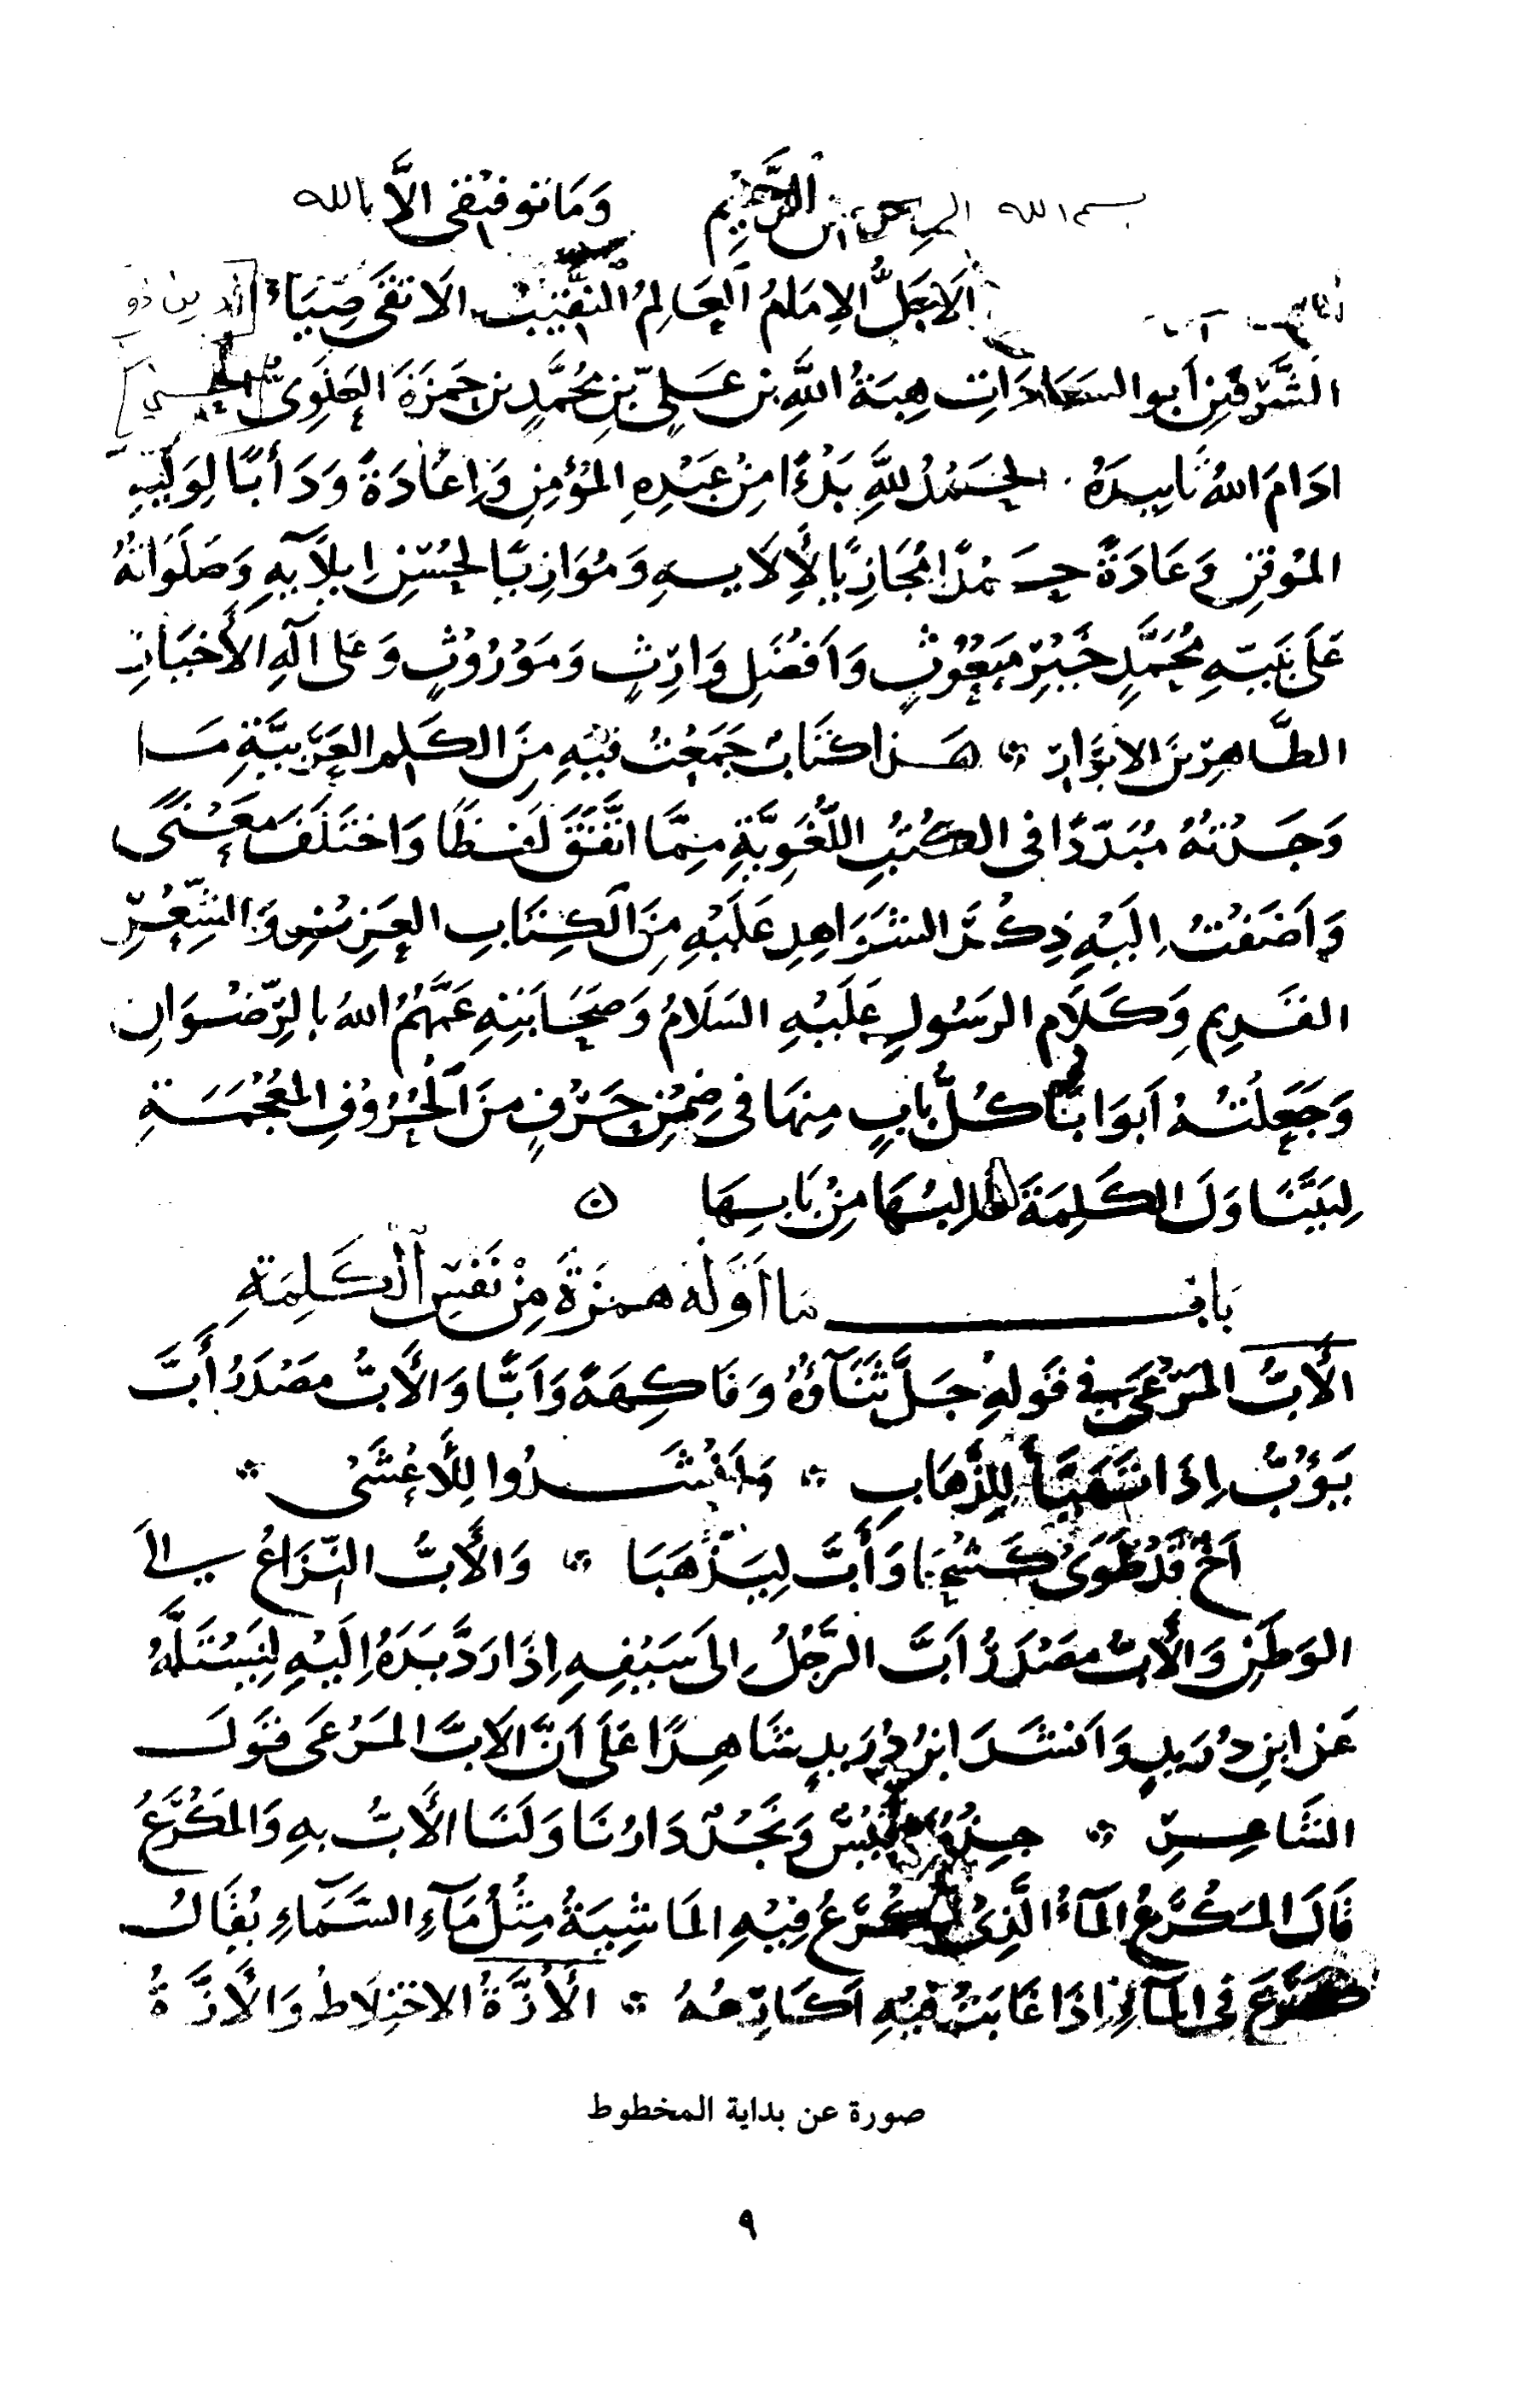 بسم الله الرحمن الرحيم وَمَا تَوفيْقي الاَّ بالله
الاَجَلُّ الاِمَامُ العَالِمُ النَّقِيْبُ الاتقَى ضِيَاءُ الدين ذو
الشَّرَفَيْنِ أبو السَعَادَاتِ هِبَةُ اللَّهِ بن عَلىِّ بْنِ مُحمَّدٍ بن حَمزَةَ العَلَوِىُّ الحسني
ادَامَ اللهُ تَاييدَهُ الحَمْدُ للهِ بَدْءًا مِنْ عَبْدِهِ المُؤْمِنِ وَاِعَادَةً وَدَأبًا لِوَلِيِّهِ
المُوْقِنِ وَعَادَةً حَمْدًا مُجَازِيًا لِأَلَايِهِ وَمُوَازِيًا لحُسْنِ اِبلَآيِهِ وَصَلَوَاتُهُ
عَلَى نَبِيّهِ مُحمَّدٍ خَيْرِ مَبعُوْثٍ وَاَفْضَلِ وَارِثٍ وَمَوْرُوْثٍ وَعَلى آلِهِ الأَخْيَارِ
الطَّاهِرِيْنَ الاَبْرَارِ هَذا كتَابٌ جَمَعْتُ فيْهِ مِنَ الكَلِمِ العَرَبيَّةِ مَا
وَجَدْتُهُ مُبَدَّدًا فى الكُتُبِ اللُّغَوِيَّةِ مِمَّا اتَّفَقَ لَفظًا وَاختَلَفَ مَعْنىً
وَاَضَفْتُ اِلَيْهِ ذِكْرَ الشَوَاهِدِ عَلَيْهِ مِنَ الكِتَابِ العَزِيْزِ وَالشِّعْرِ
القَدِيمِ وَكَلَامِ الرسُولِ عَلَيْهِ السَلَامُ وَصَحَابَتِهِ عَمَّهُمُ اللهُ بالرِّضْوَانِ
وَجَعَلتُهُ اَبوَابًا كُلُّ بابٍ مِنهَا فى ضِمْنِ حَرْفٍ مِنَ الحُرُوْفِ المُعْجَمَةِ
لِيَتَنَاوَلَ الكَلِمَةَ طالِبُهَا مِنْ بَابِهَا ن
بَابُ مَا اَوَّلُهُ هَمزَةٌ مِنْ نَفْسِ الكَلِمَةِ
الأَبُّ المَرْعَى في قَولِهِ جَلَّ ثَنَآؤُهُ وَفَاكِهَةً وَاَبًّا وَالاَبُّ مَصْدَرُ أَبَّ
يَؤُبُّ اِذَا تَهَيَّأَ لِلذَّهَابِ وَاَنْشَدُوا لِلأَعْشَى
اَخٌ قَدْ طَوَى كَشْحًا وَأَبَّ لِيَذْهَبَا وَالأَبُّ النِّزَاعُ الىَ
الوَطَنِ وَالأَبُّ مَصْدَرُ اَبَّ الرَّجُلُ الىَ سَيْفِهِ اِذَا رَدَّ يَدَهُ اِلَيْهِ لِيَسْتَلَّهُ
عَن ابنِ دُرَيدٍ وَاَنشَدَ ابنُ دُرَيدٍ شَاهِدًا عَلَى اَنَّ الاَبَّ المَرْعَى قَوْلَ
الشَاعِرِ جِذْمُنَا قَيْسٌ وَنَجْدٌ دَارُنَا وَلَنَا الأَبُّ بِهِ وَالمَكْرَعُ
قَالَ المَكْرَعُ المَآءُ الَّذِى تَكْرَعُ فِيْهِ المَاشِيَةُ مِثْلُ مَآءِ السَّمَآءِ يُقَالُ
كَرَعَ فى المَآءِ اِذَا غَابَتْ فِيْهِ اَكَارِعُهُ الأَزَّةُ الاختِلَاطُ وَالأَزَّةُ
صورة عن بداية المخطوط
٩